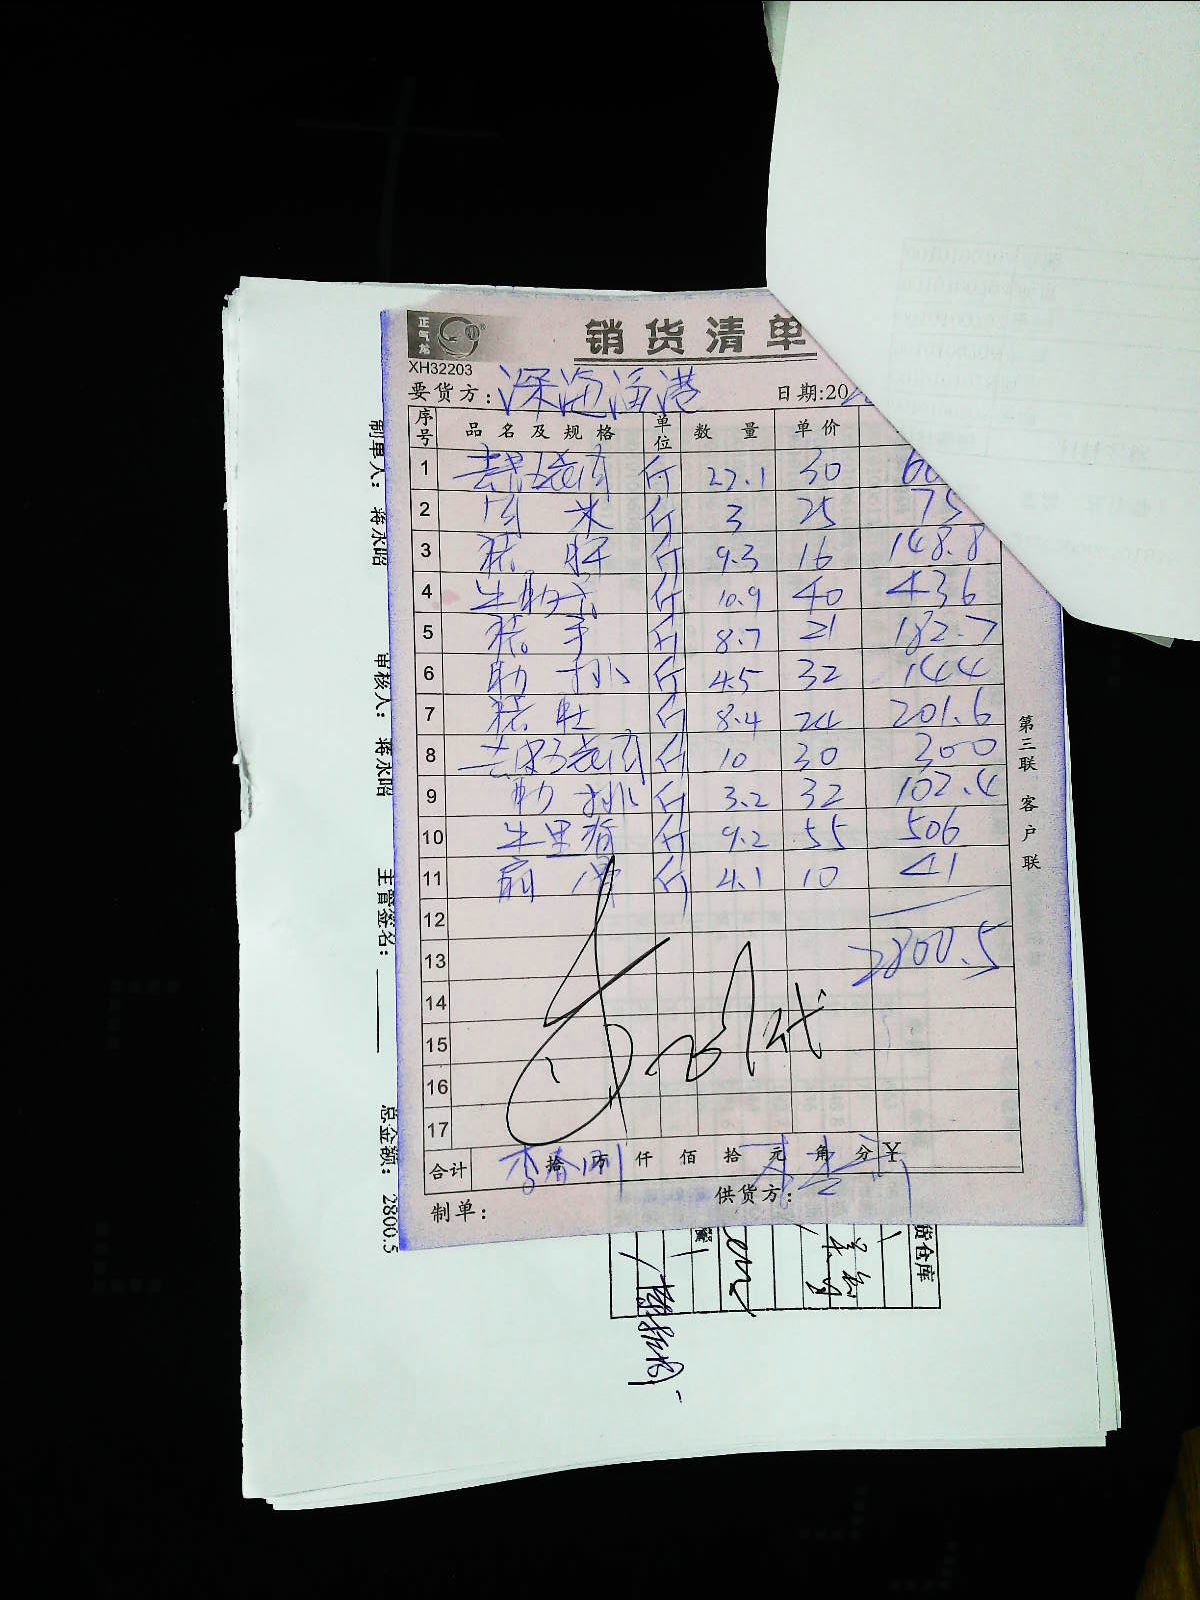 正气龙
销货清单
XH32203
要货方: 深海渔港
日期:20
序号 品名及规格 单位 数量 单价
1 斤 22.1 30
2 肉 米 斤 3 25 75
3 猪 肝 斤 9.3 16 148.8
4 牛肋条 斤 10.9 40 436
5 猪 手 斤 8.7 21 182.7
6 肋 排 斤 4.5 32 144
7 猪 肚 斤 8.4 24 201.6
8 斤 10 30 300
9 肋 排 斤 3.2 32 102.4
10 牛里脊 斤 9.2 55 506
11 斤 4.1 10 41
12
13 2800.5
14
15
16
17
合计 拾 万 仟 佰 拾 元 角 分 ¥
制单: 供货方:
第三联 客户联
制单人: 蒋永昭 审核人: 蒋永昭 主管签名: 总金额: 2800.5
货仓库